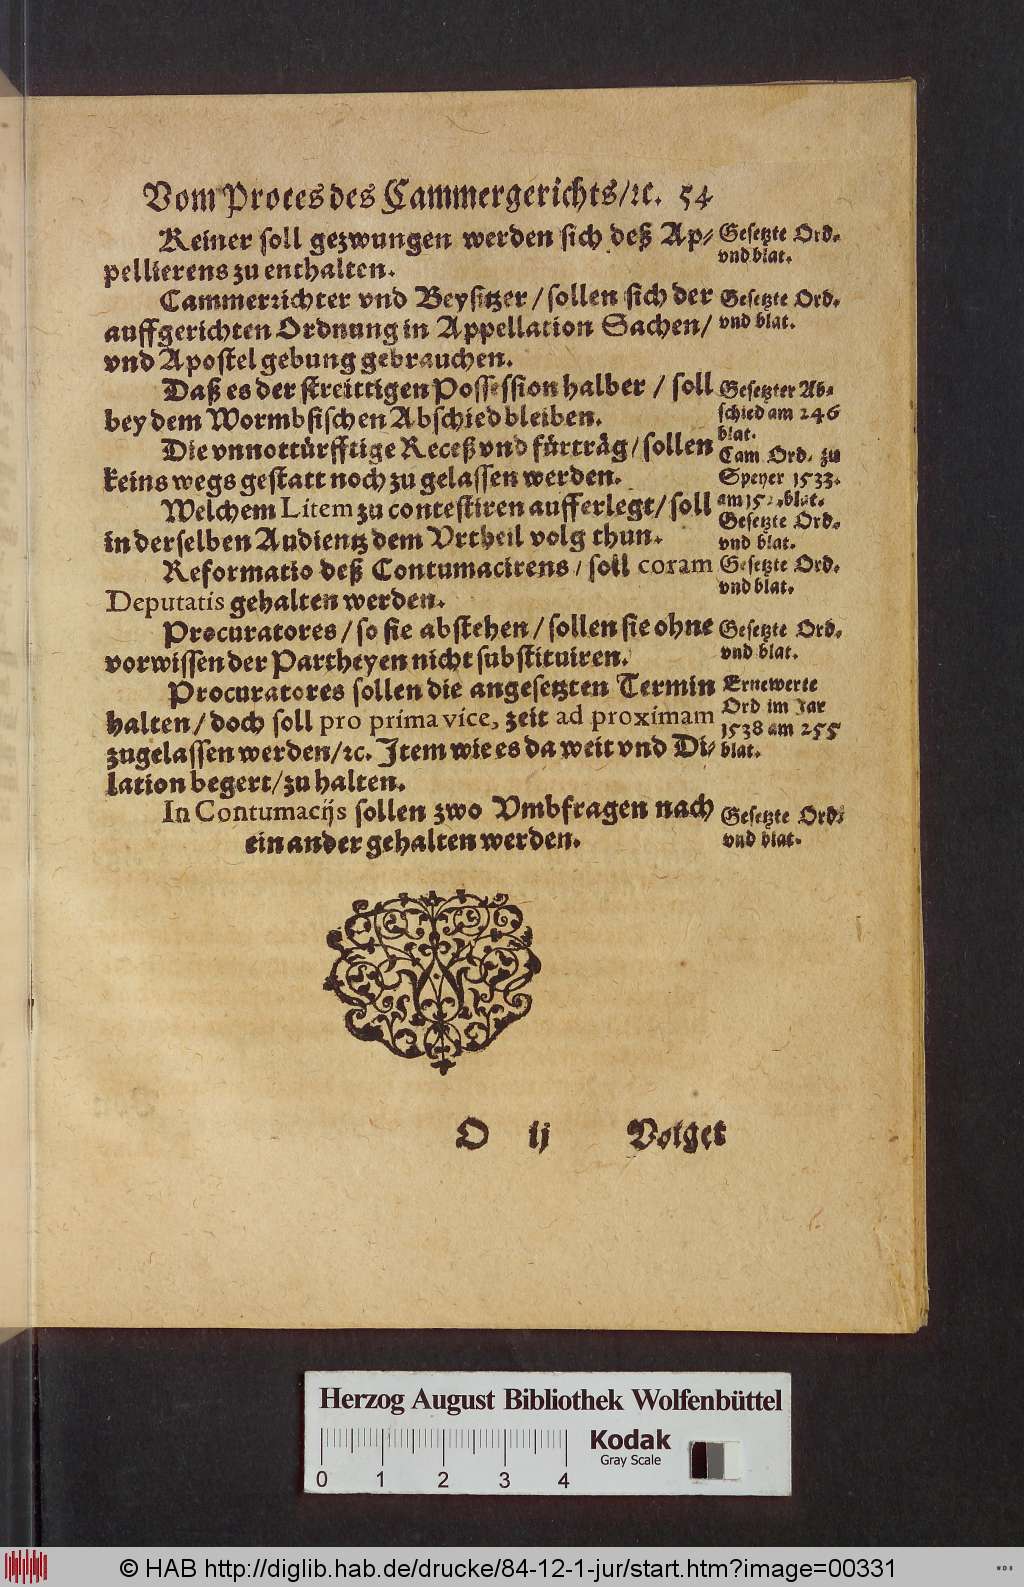 Vom Proces des Cammergerichts/ꝛc. 54
Keiner soll gezwungen werden sich deß Ap-
pellierens zu enthalten.
Gesetzte Ord.
vnd blat.
Cammerrichter vnd Beysitzer / sollen sich der
auffgerichten Ordnung in Appellation Sachen/
vnd Apostel gebung gebrauchen.
Gesetzte Ord.
vnd blat.
Daß es der streittigen Possession halber / soll
bey dem Wormbsischen Abschied bleiben.
Gesetzter Ab-
schied am 246
blat.
Die vnnottürfftige Receß vnd fürträg/ sollen
keins wegs gestatt noch zu gelassen werden.
Cam Ord. zu
Speyer 1533.
am 152. blat.
Welchem Litem zu contestiren aufferlegt/ soll
in derselben Audientz dem Vrtheil volg thun.
Gesetzte Ord.
vnd blat.
Reformatio deß Contumacirens / soll coram
Deputatis gehalten werden.
Gesetzte Ord.
vnd blat.
Procuratores / so sie abstehen / sollen sie ohne
vorwissen der Partheyen nicht substituiren.
Gesetzte Ord.
vnd blat.
Procuratores sollen die angesetzten Termin
halten / doch soll pro prima vice, zeit ad proximam
zugelassen werden/ꝛc. Item wie es da weit vnd Di-
lation begert/zu halten.
Ernewerte
Ord im Jar
1538 am 255
blat.
In Contumacijs sollen zwo Vmbfragen nach
einander gehalten werden.
Gesetzte Ord.
vnd blat.
O ij Volget
Herzog August Bibliothek Wolfenbüttel
Kodak
Gray Scale
0 1 2 3 4
© HAB http://diglib.hab.de/drucke/84-12-1-jur/start.htm?image=00331